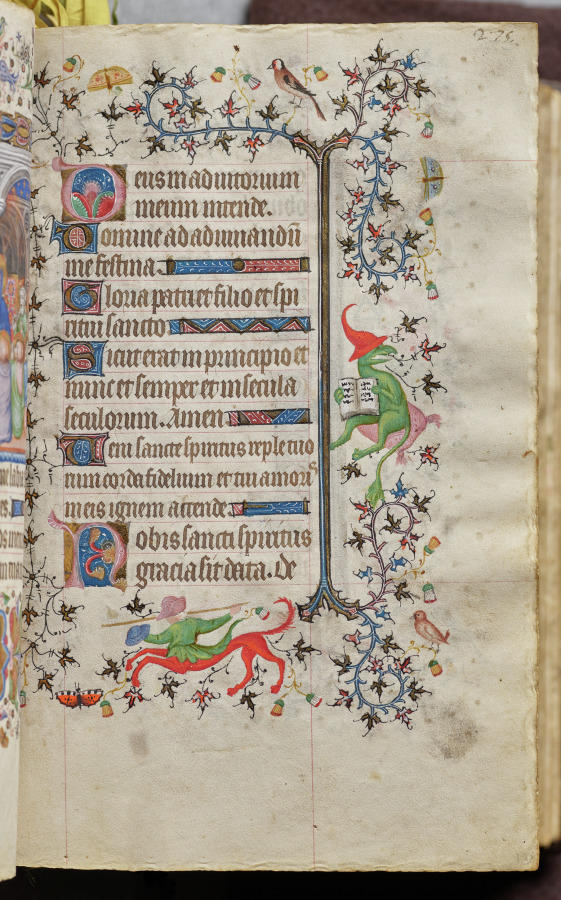 275.
Deus in adiutorium
meum intende.
Domine ad adiuuandū
me festina.
Gloria patri et filio et spi
ritui sancto
Sicut erat in principio et
nunc et semper et in secula
seculorum. Amen
Ueni sancte spiritus reple tuo
rum corda fidelium et tui amoris
in eis ignem accende
Nobis sancti spiritus
gracia sit data. De